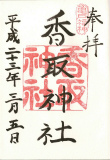 奉拝
香取神社
香取
神社
平成二十三年三月五日